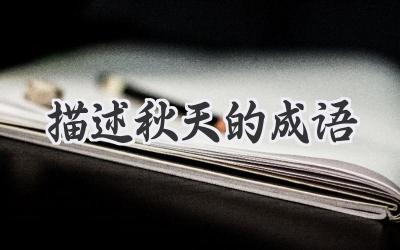 描述秋天的成语